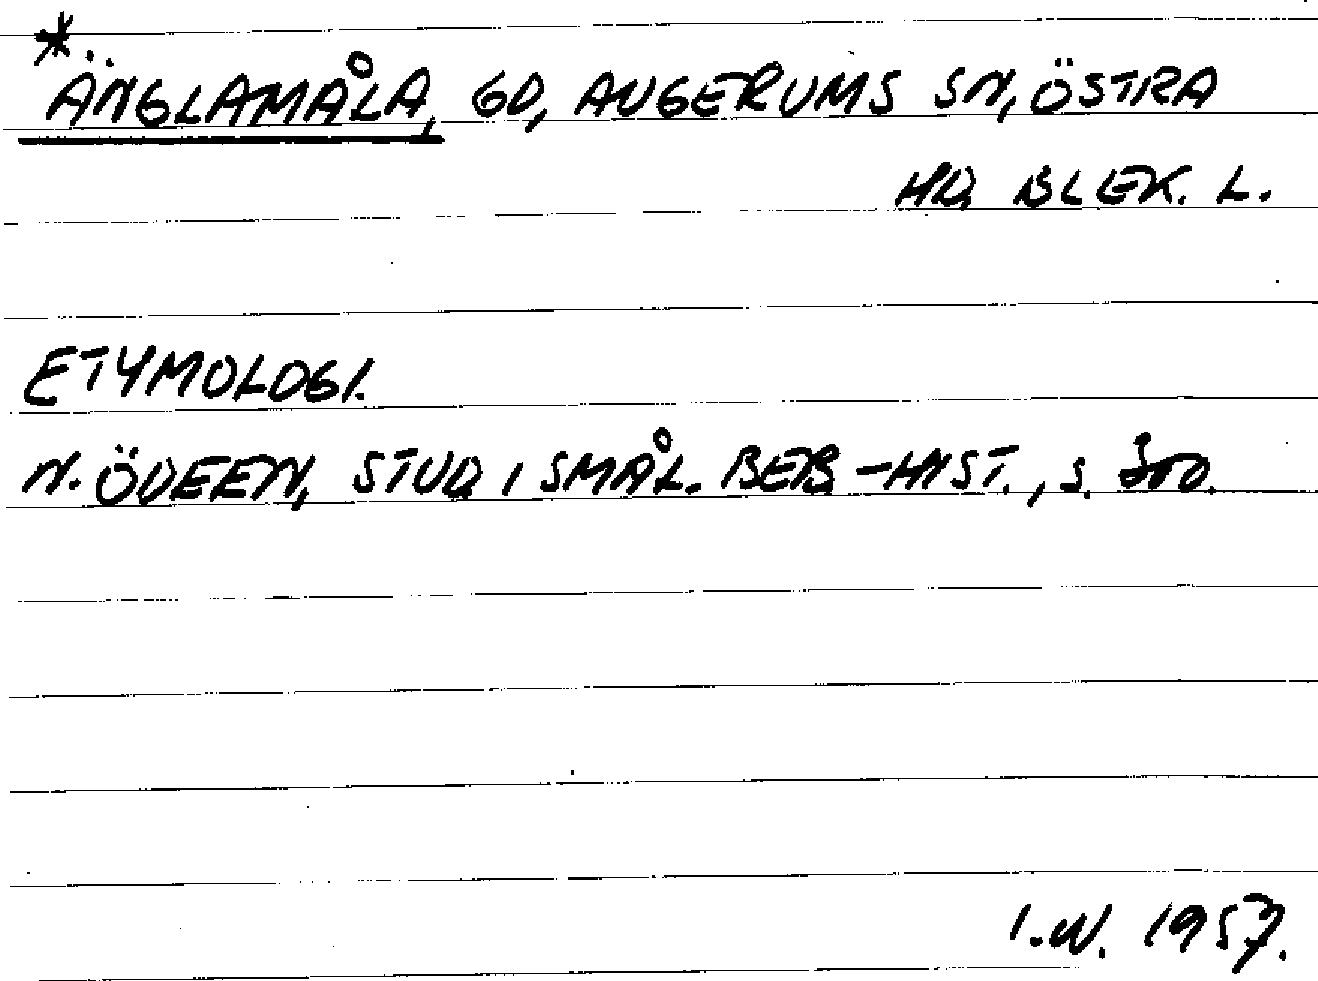 *ÄNGLAMÅLA, GD, AUGERUMS SN, ÖSTRA
HD, BLEK. L.
ETYMOLOGI.
N. ÖDEEN, STUD. I SMÅL. BEB.-HIST., S. 300.
I.W. 1957.